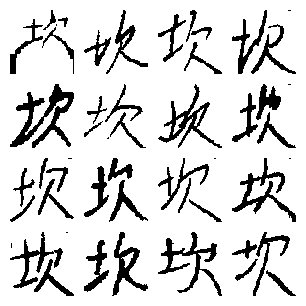 坎坎坎坎
坎坎坎坎
坎坎坎坎
坎坎坎坎